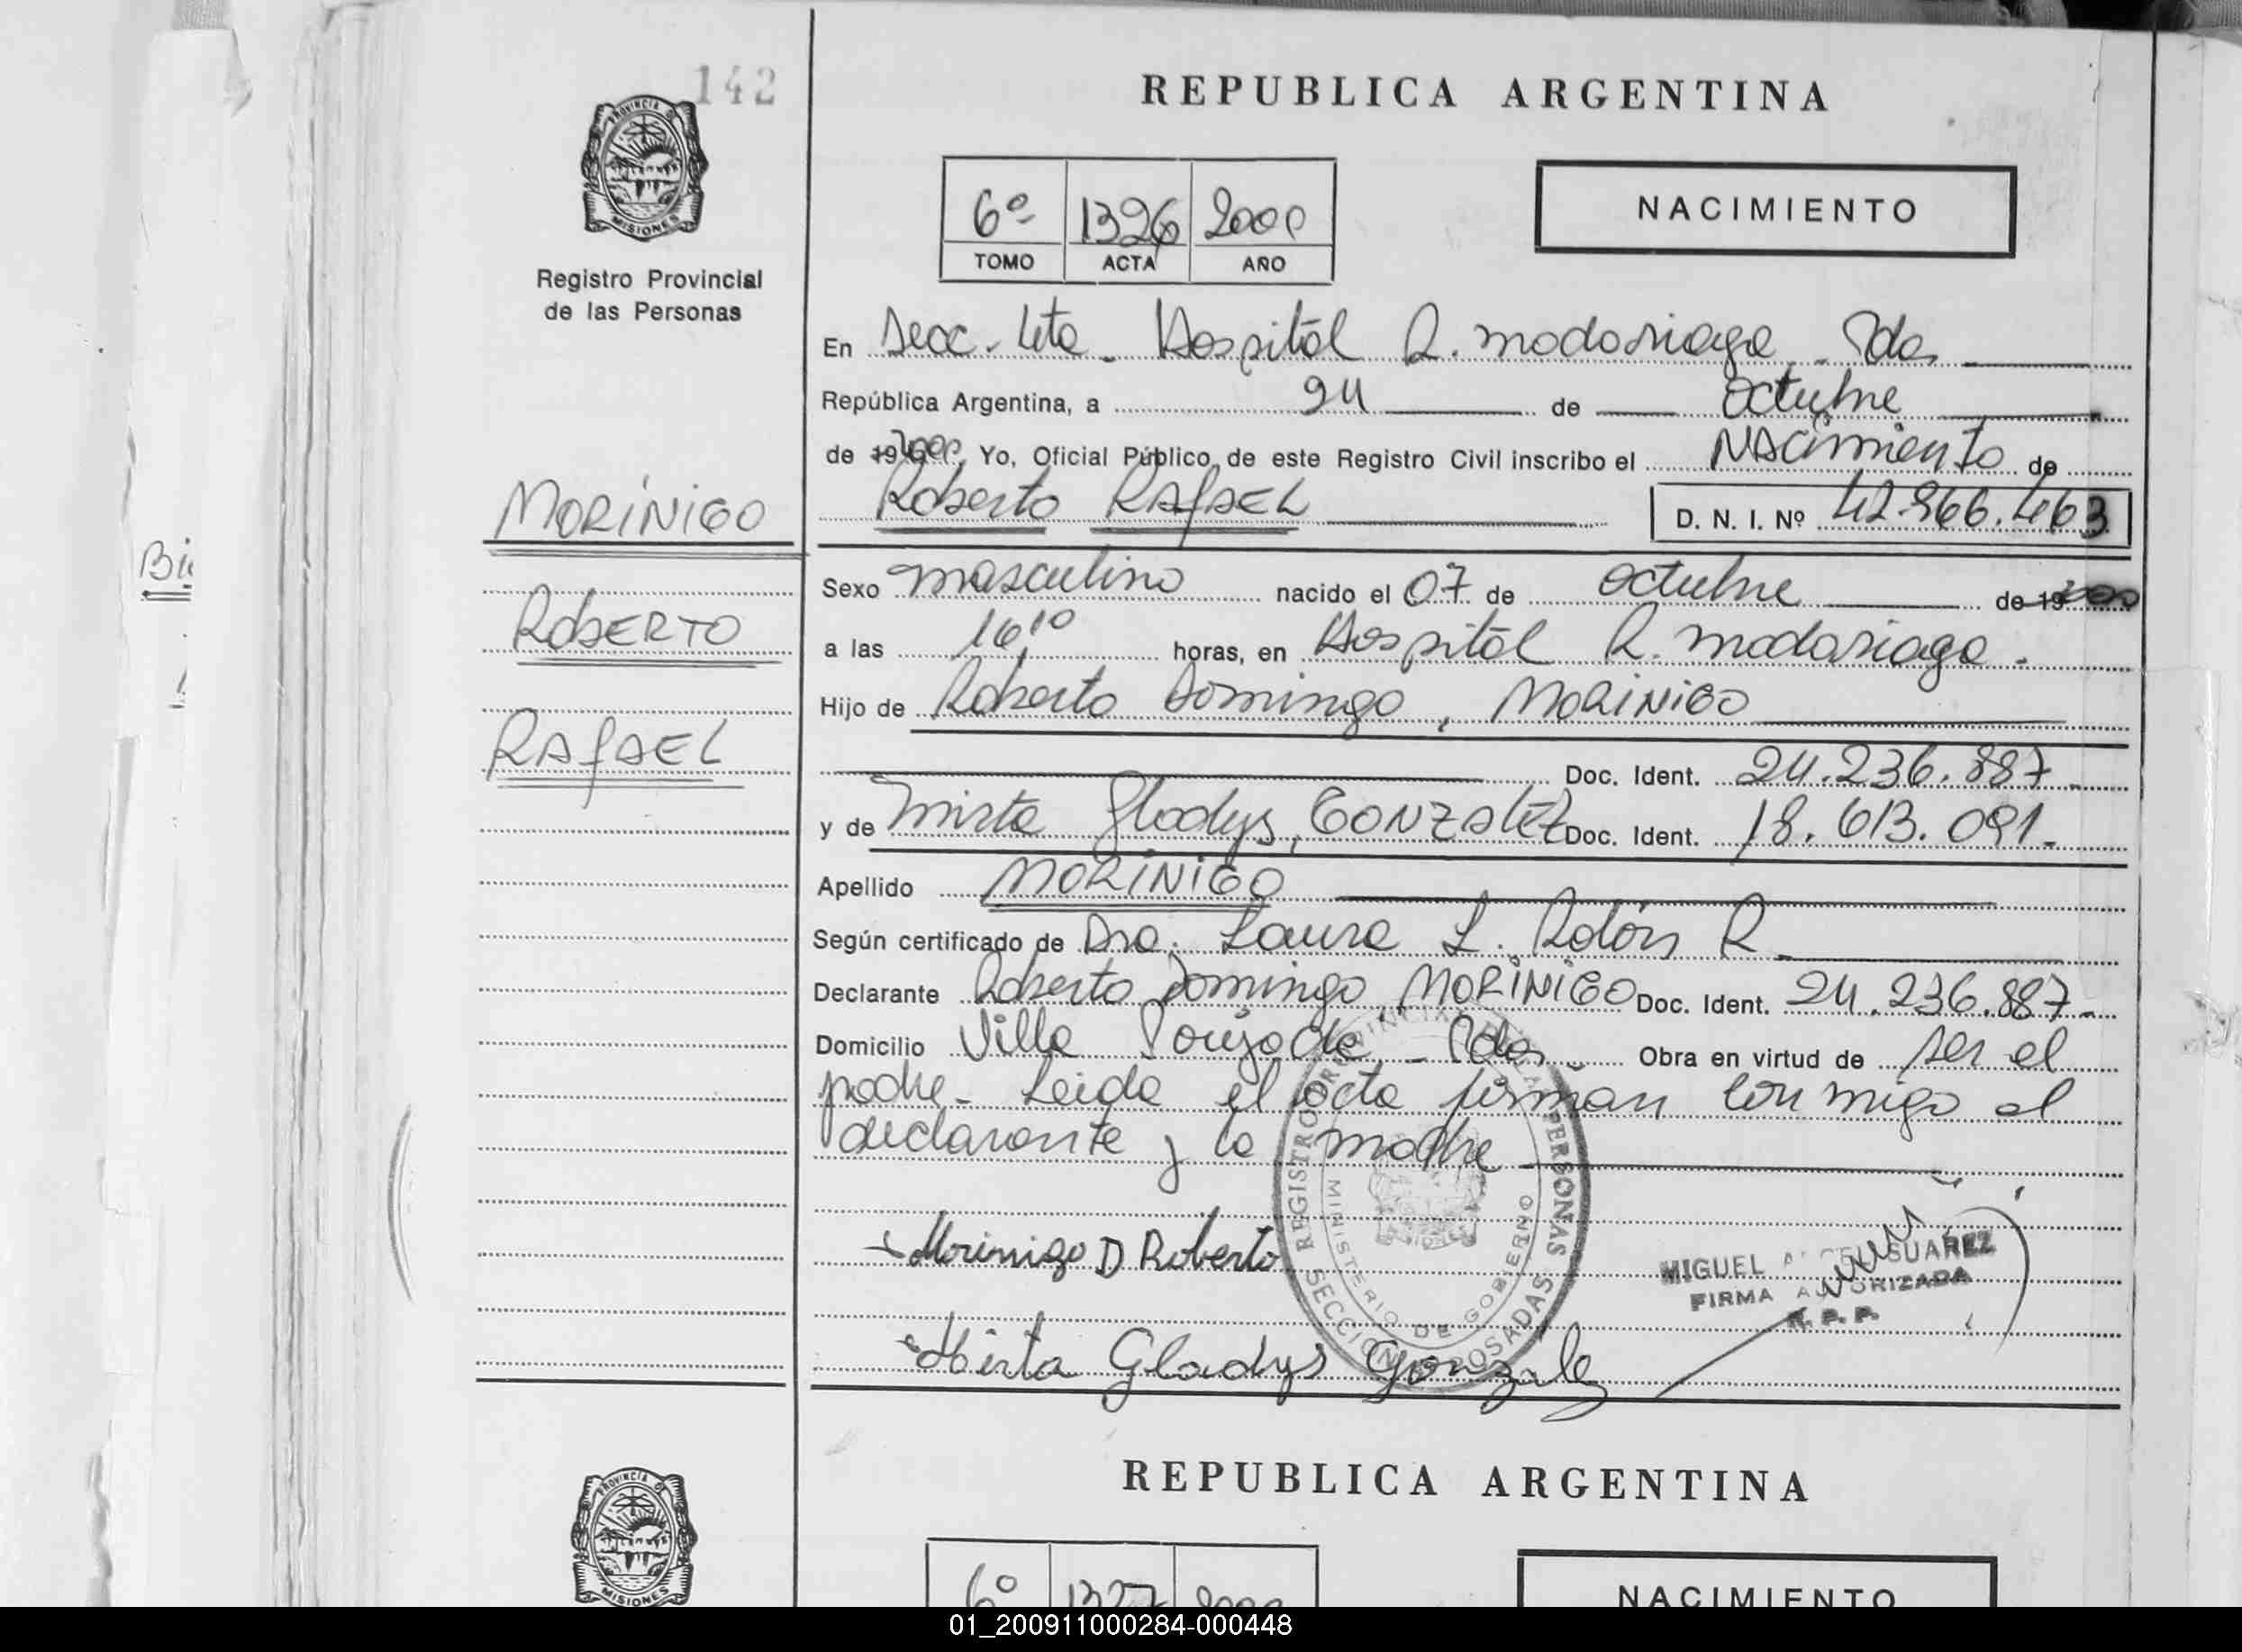 142
PROVINCIA D
MISIONES
Registro Provincial
de las Personas
MORÍNIGO
ROBERTO
RAFAEL
REPUBLICA ARGENTINA
6º 1326 2000
TOMO ACTA AÑO
NACIMIENTO
En Secc. 4ta. Hospital R. Madariaga - Pdas
República Argentina, a 24 de Octubre
de 19 2000, Yo, Oficial Público de este Registro Civil inscribo el NACIMIENTO de
Roberto RAFAEL D. N. I. Nº 42.966.463
Sexo masculino nacido el 07 de Octubre de 19 2000
a las 16 10 horas, en Hospital R. Madariaga.
Hijo de Roberto Domingo, MORINIGO
Doc. Ident. 24.236.887.
y de Mirta Gladys, GONZALEZ Doc. Ident. 18.613.091.
Apellido MORÍNIGO
Según certificado de Dra. Laura L. Rolón R.
Declarante Roberto Domingo MORINIGO Doc. Ident. 24.236.887.
Domicilio Villa Poujade - Pdas Obra en virtud de ser el
padre - Leida el acta firman conmigo el
declarante y la madre
REGISTRO PROVINCIAL DE LAS PERSONAS
MINISTERIO DE GOBIERNO
SECCION POSADAS
Morinigo D. Roberto
MIGUEL SUAREZ
FIRMA AUTORIZADA
R. P. P.
Mirta Gladys Gonzalez
PROVINCIA D
MISIONES
REPUBLICA ARGENTINA
6º 1327 2000
NACIMIENTO
01_200911000284-000448